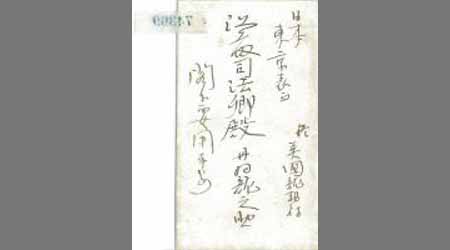 日本
東京表
英國龍動
江藤司法卿殿
丹羽龍之助
閣下要用